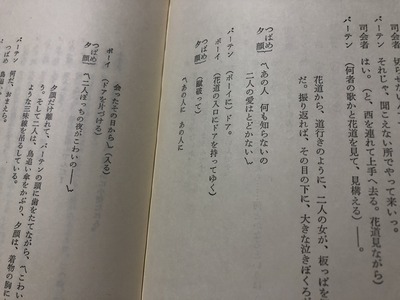 司会者
バーテン それじゃ、聞こえない所でやって来いっ。
司会者 はい。（と、西を連れて上手へ去る。花道見ながら）
バーテン （何者の歌かと花道を見て、見構える）——。
花道から、道行きのように、二人の女が、板っぱを
だ。振り返れば、その目の下に、大きな泣きぼくろが
つばめ
夕顔
〽あの人 何も知らないの
二人の愛はとどかない〽
バーテン （ボーイに）ドア。
ボーイ （花道の入口にドアを持ってゆく）
つばめ
夕顔
（蹴破って）
〽あの人に あの人に
会ったその日から〽（入る）
ボーイ （ドアを片づける）
つばめ
夕顔
〽二人ぼっちの夜がこわいの——〽
〽こわい
夕顔だけ離れて、バーテンの頭に歯をたてながら、
り。そして二人は、鳥追い傘をかぶり、夕顔は、着物の胸に
ような三味線を吊るしている。
バーテン 何だ、おまえら。
つばめ